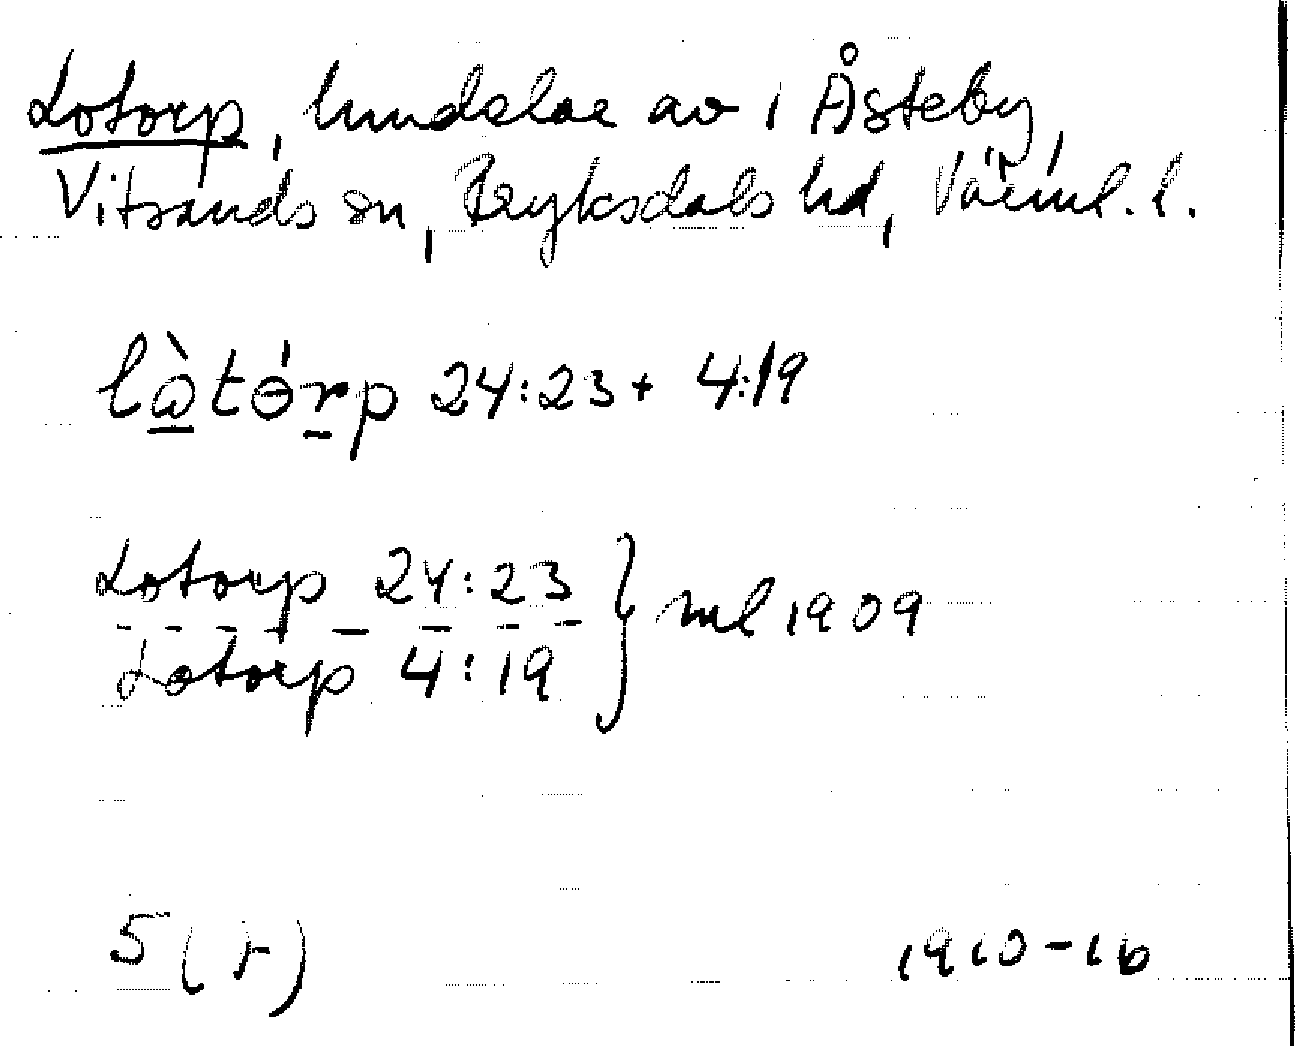 Lotorp, hmdelar av 1 Åsteby,
Vitsands sn, Fryksdals hd, Värml. l.
làtórp 24:23 + 4:19
Lotorp 24:23
Lotorp 4:19 } ml 1909
5 (r) 1910-16